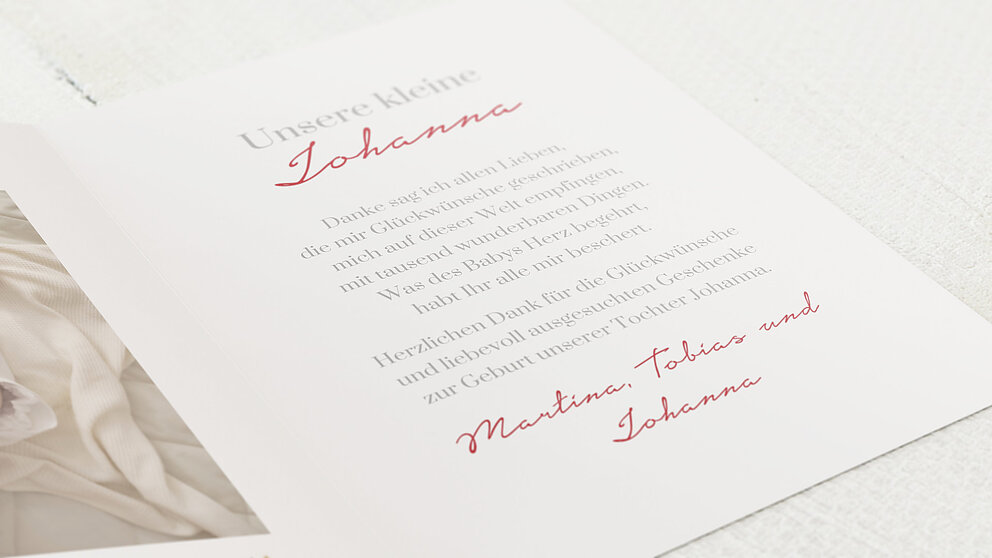 Unsere kleine
Johanna
Danke sag ich allen Lieben,
die mir Glückwünsche geschrieben,
mich auf dieser Welt empfingen,
mit tausend wunderbaren Dingen.
Was des Babys Herz begehrt,
habt Ihr alle mir beschert.
Herzlichen Dank für die Glückwünsche
und liebevoll ausgesuchten Geschenke
zur Geburt unserer Tochter Johanna.
Martina, Tobias und
Johanna